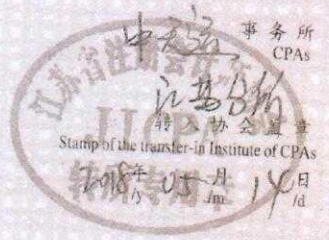 中天运 事务所
CPAs
江苏分所
转入协会盖章
Stamp of the transfer-in Institute of CPAs
2018年 05月 14日
/y /m /d
江苏省注册会计师协会
JICPA
转所专用章